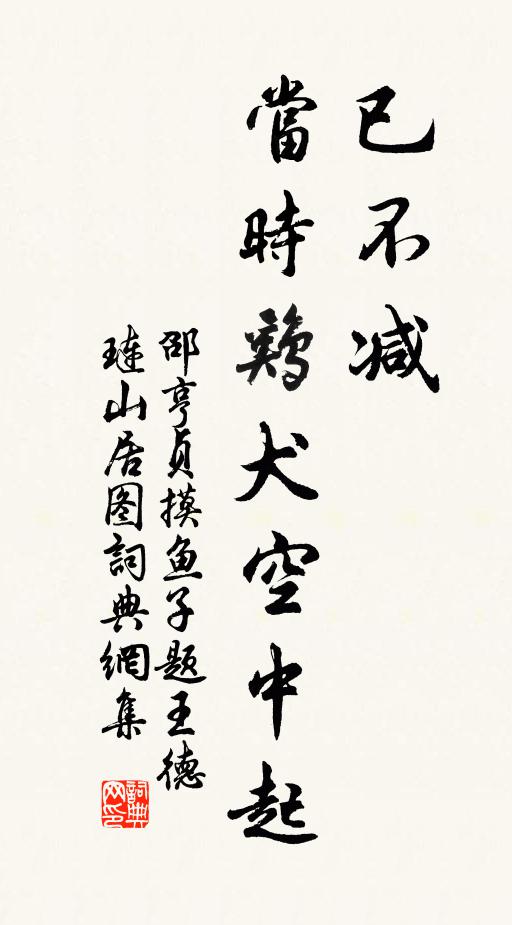 已不减
當時鷄犬空中起
邵亨貞摸鱼子题王德
璉山居图詞典網集
詞典网印